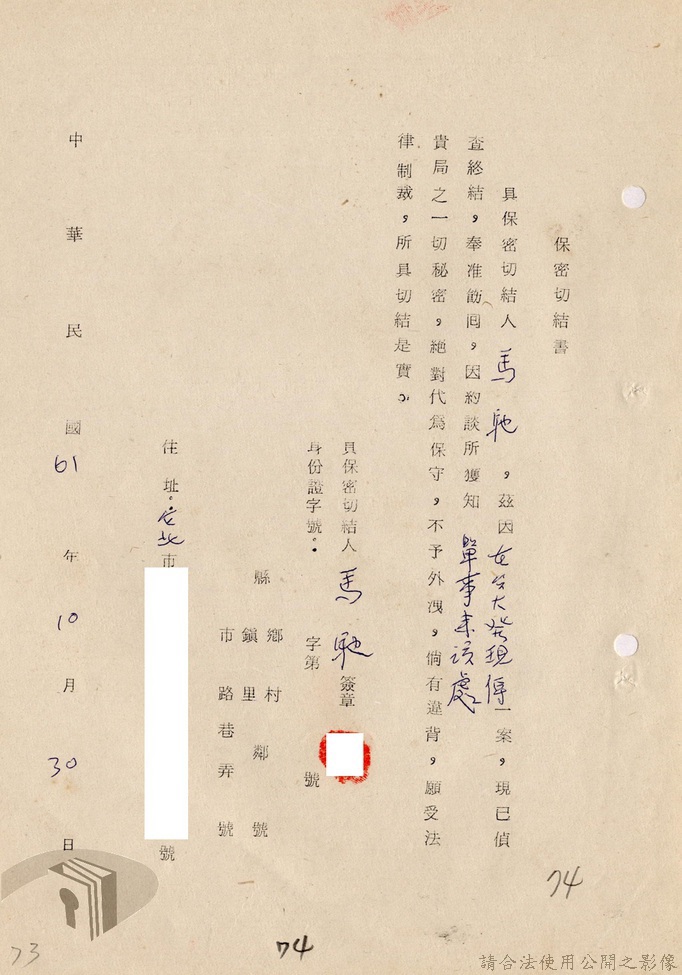 保密切結書
具保密切結人 馬馳，茲因在台大發現傳一案，現已偵
單事來該處
查終結，奉准飭回，因約談所獲知
貴局之一切秘密，絕對代為保守，不予外洩，倘有違背，願受法
律制裁，所具切結是實。
具保密切結人 馬馳 簽章
身份證字號： 字第 號
縣 鄉鎮 村里 鄰 號
市 路 巷 弄 號
住址：台北市 號
中華民國 61 年 10 月 30 日
74
74
73
請合法使用公開之影像